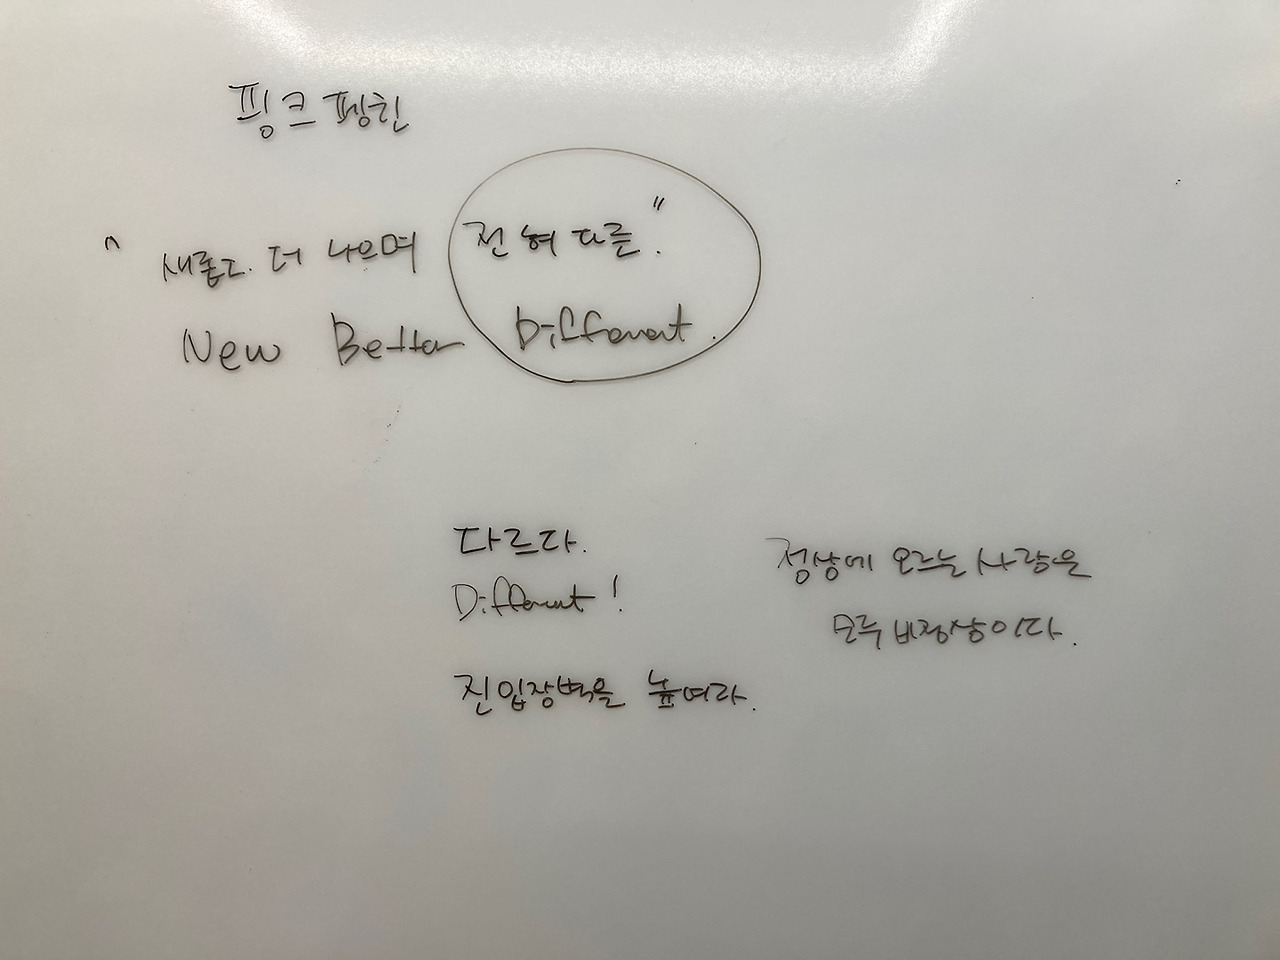 핑크 펭귄
"새롭고. 더 나으며 전혀 다름."
New Better Different.
다르다.
Different!
진입장벽을 높여라.
정상에 오르는 사람은
모두 비정상이다.